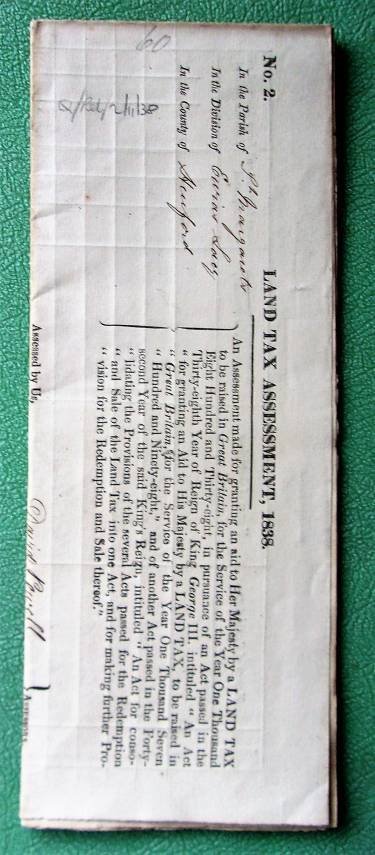 60
No. 2.
LAND TAX ASSESSMENT, 1838.
In the Parish of St. Margarets
In the Division of Ewias Lacy
In the County of Hereford
An Assessment made for granting an aid to Her Majesty by a LAND TAX
to be raised in Great Britain, for the Service of the Year One Thousand
Eight Hundred and Thirty-eight, in pursuance of an Act passed in the
Thirty-eighth Year of Reign of King George III. intituled "An Act
"for granting an Aid to His Majesty by a LAND TAX, to be raised in
"Great Britain, for the Service of the Year One Thousand Seven
"Hundred and Ninety-eight," and of another Act passed in the Forty-
second Year of the said King's Reign, intituled "An Act for conso-
"lidating the Provisions of the several Acts passed for the Redemption
"and Sale of the Land Tax into one Act, and for making further Pro-
"vision for the Redemption and Sale thereof."
Assessed by Us,
David Powell
Assessors.